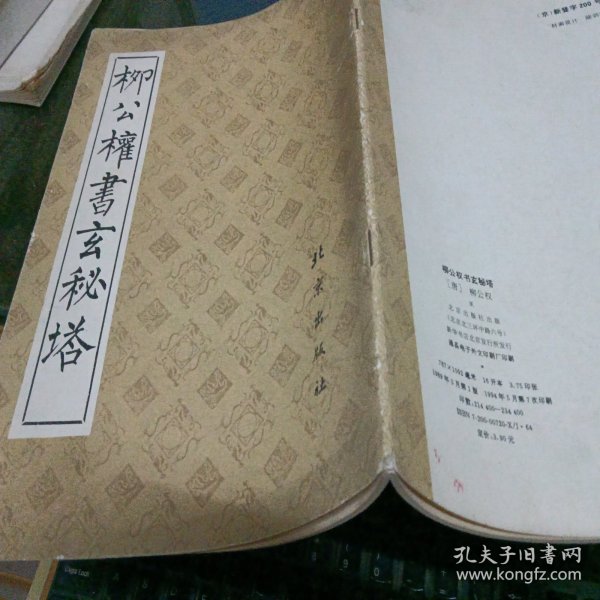 柳公權書玄秘塔
北京出版社
(京)新登字200号
封面设计
柳公权书玄秘塔
〔唐〕 柳公权
*
北京出版社出版
(北京北三环中路六号)
新华书店北京发行所发行
通县电子外文印刷厂印刷
*
787×1092毫米 16开本 3.75印张
1989年5月第1版 1994年5月第7次印刷
印数:214 400—234 400
ISBN 7-200-00720-X/J·64
定价:3.95元
孔夫子旧书网
www.kongfz.com